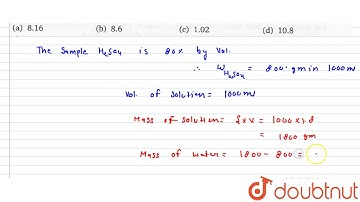 (a) 8.16 (b) 8.6 (c) 1.02 (d) 10.8
The Sample H₂SO₄ is 80% by Vol.
∴ W H₂SO₄ = 800 gm in 1000ml
Vol. of Solution = 1000 ml
Mass of solution = d×V = 1000×1.8
= 1800 gm
Mass of water = 1800 - 800 =
doubtnut